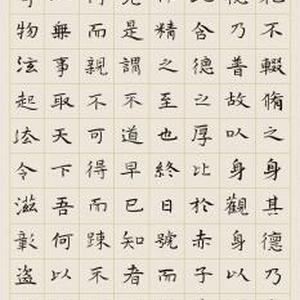 不輟脩之身其德乃
乃普故以身觀身以
含德之厚比於赤子
精之至也終日號而
是謂不道早已知者
而親不可得而踈不
無事取天下吾何以
物滋起法令滋彰盜